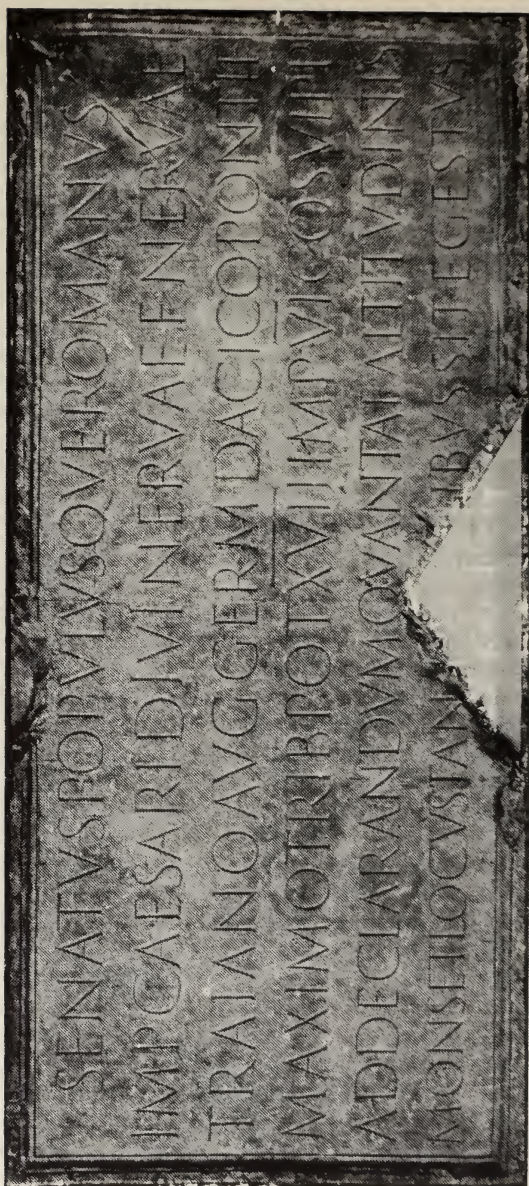 SENATVS POPVLVSQVE ROMANVS
IMP CAESARI DIVI NERVAE F NERVAE
TRAIANO AVG GERM DACICO PONTIF
MAXIMO TRIB POT XVII IMP VI COS VI P P
AD DECLARANDVM QVANTAE ALTITVDINIS
MONS ET LOCVS TAN IBVS SIT EGESTVS